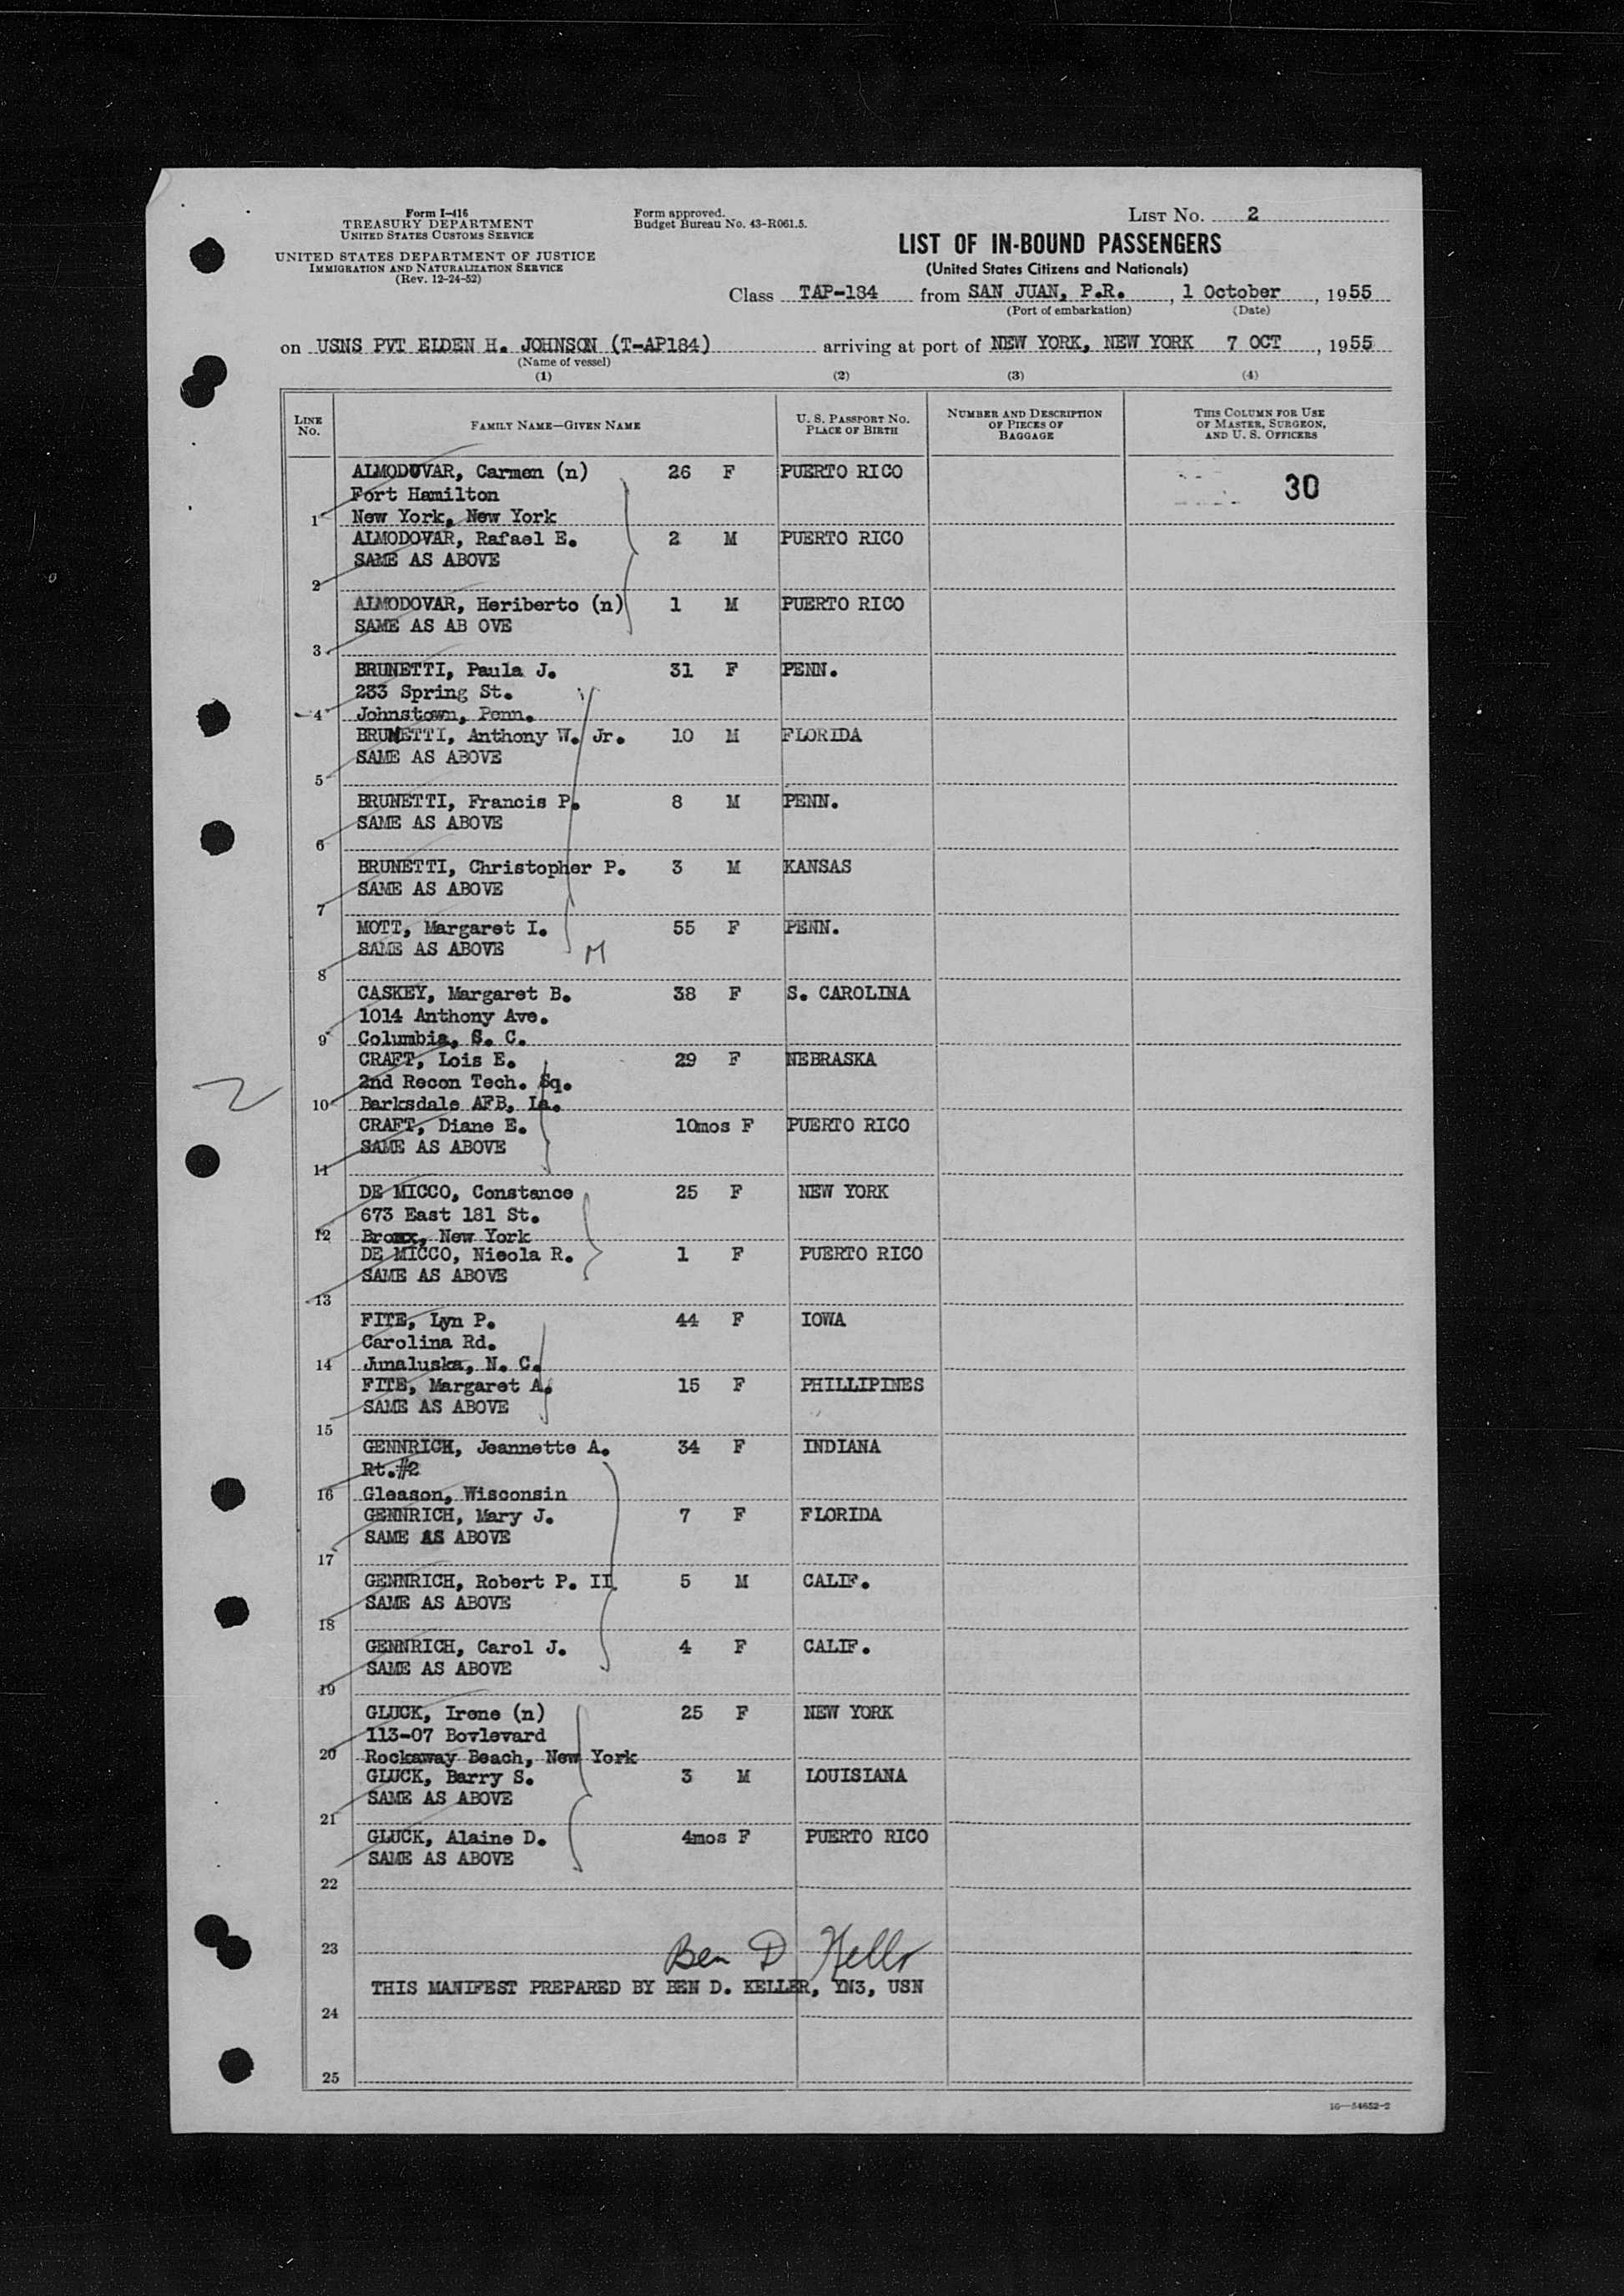 Form I-416
TREASURY DEPARTMENT
UNITED STATES CUSTOMS SERVICE
UNITED STATES DEPARTMENT OF JUSTICE
IMMIGRATION AND NATURALIZATION SERVICE
(Rev. 12-24-52)
Form approved.
Budget Bureau No. 43-R061.5.
LIST NO. 2
LIST OF IN-BOUND PASSENGERS
(United States Citizens and Nationals)
Class TAP-184 from SAN JUAN, P.R., 1 October, 1955
(Port of embarkation) (Date)
on USNS PVT ELDEN H. JOHNSON (T-AP184) arriving at port of NEW YORK, NEW YORK 7 OCT, 1955
(Name of vessel)
(1) (2) (3) (4)
LINE NO. FAMILY NAME—GIVEN NAME U. S. PASSPORT NO. PLACE OF BIRTH NUMBER AND DESCRIPTION OF PIECES OF BAGGAGE THIS COLUMN FOR USE OF MASTER, SURGEON, AND U. S. OFFICERS
ALMODUVAR, Carmen (n) 26 F PUERTO RICO
30
Fort Hamilton
1 New York, New York
ALMODOVAR, Rafael E. 2 M PUERTO RICO
SAME AS ABOVE
2
ALMODOVAR, Heriberto (n) 1 M PUERTO RICO
SAME AS AB OVE
3
BRUNETTI, Paula J. 31 F PENN.
233 Spring St.
4 Johnstown, Penn.
BRUNETTI, Anthony W. Jr. 10 M FLORIDA
SAME AS ABOVE
5
BRUNETTI, Francis P. 8 M PENN.
SAME AS ABOVE
6
BRUNETTI, Christopher P. 3 M KANSAS
SAME AS ABOVE
7
MOTT, Margaret I. 55 F PENN.
SAME AS ABOVE M
8
CASKEY, Margaret B. 38 F S. CAROLINA
1014 Anthony Ave.
9 Columbia, S. C.
CRAFT, Lois E. 29 F NEBRASKA
2nd Recon Tech. Sq.
2
10 Barksdale AFB, La.
CRAFT, Diane E. 10mos F PUERTO RICO
SAME AS ABOVE
11
DE MICCO, Constance 25 F NEW YORK
673 East 181 St.
12 Bronx, New York
DE MICCO, Nicola R. 1 F PUERTO RICO
SAME AS ABOVE
13
FITE, Lyn P. 44 F IOWA
Carolina Rd.
14 Junaluska, N. C.
FITE, Margaret A. 15 F PHILLIPINES
SAME AS ABOVE
15
GENNRICH, Jeannette A. 34 F INDIANA
Rt.#2
16 Gleason, Wisconsin
GENNRICH, Mary J. 7 F FLORIDA
SAME AS ABOVE
17
GENNRICH, Robert P. II 5 M CALIF.
SAME AS ABOVE
18
GENNRICH, Carol J. 4 F CALIF.
SAME AS ABOVE
19
GLUCK, Irene (n) 25 F NEW YORK
113-07 Bovlevard
20 Rockaway Beach, New York
GLUCK, Barry S. 3 M LOUISIANA
SAME AS ABOVE
21
GLUCK, Alaine D. 4mos F PUERTO RICO
SAME AS ABOVE
22
23 Ben D Keller
THIS MANIFEST PREPARED BY BEN D. KELLER, YN3, USN
24
25
16—54652-2